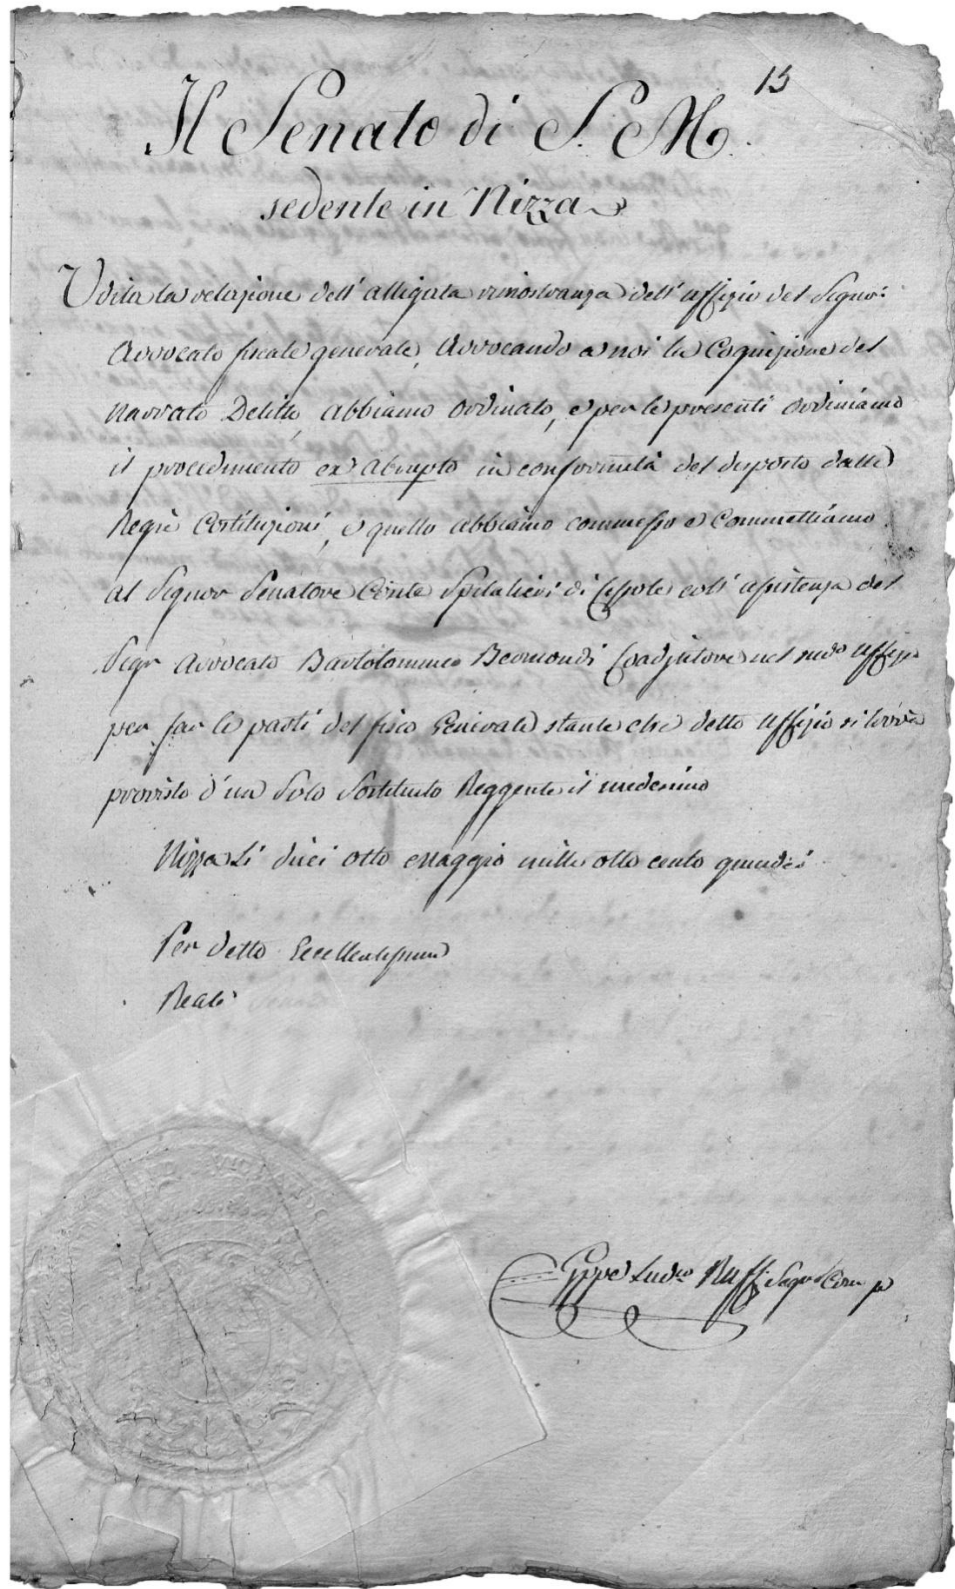 15
Il Senato di S. M.
sedente in Nizza
Udita la relazione dell' alligata rimostranza dell' uffizio del Signor
Avvocato fiscale generale, Avvocando a noi la Cognizione del
Narrato Delitto, abbiamo Ordinato, e per le presenti Ordiniamo
il procedimento ex abrupto in conformità del disposto dalle
Regie Costituzioni, e quello abbiamo commesso e Commettiamo
al Signor Senatore Conte Spitalieri di Cessole coll' assistenza del
Sigr Avvocato Bartolommeo Coadjutore nel sudo uffizio
per far le parti del fisco Generale stante che detto uffizio si trova
provisto d'un Solo Sostituito Reggente il medesimo
Nizza Li dieci otto Maggio mille otto cento quindici
Per detto Eccellentissimo
Reale Senato
Gppe Ludco Ruffi Segro